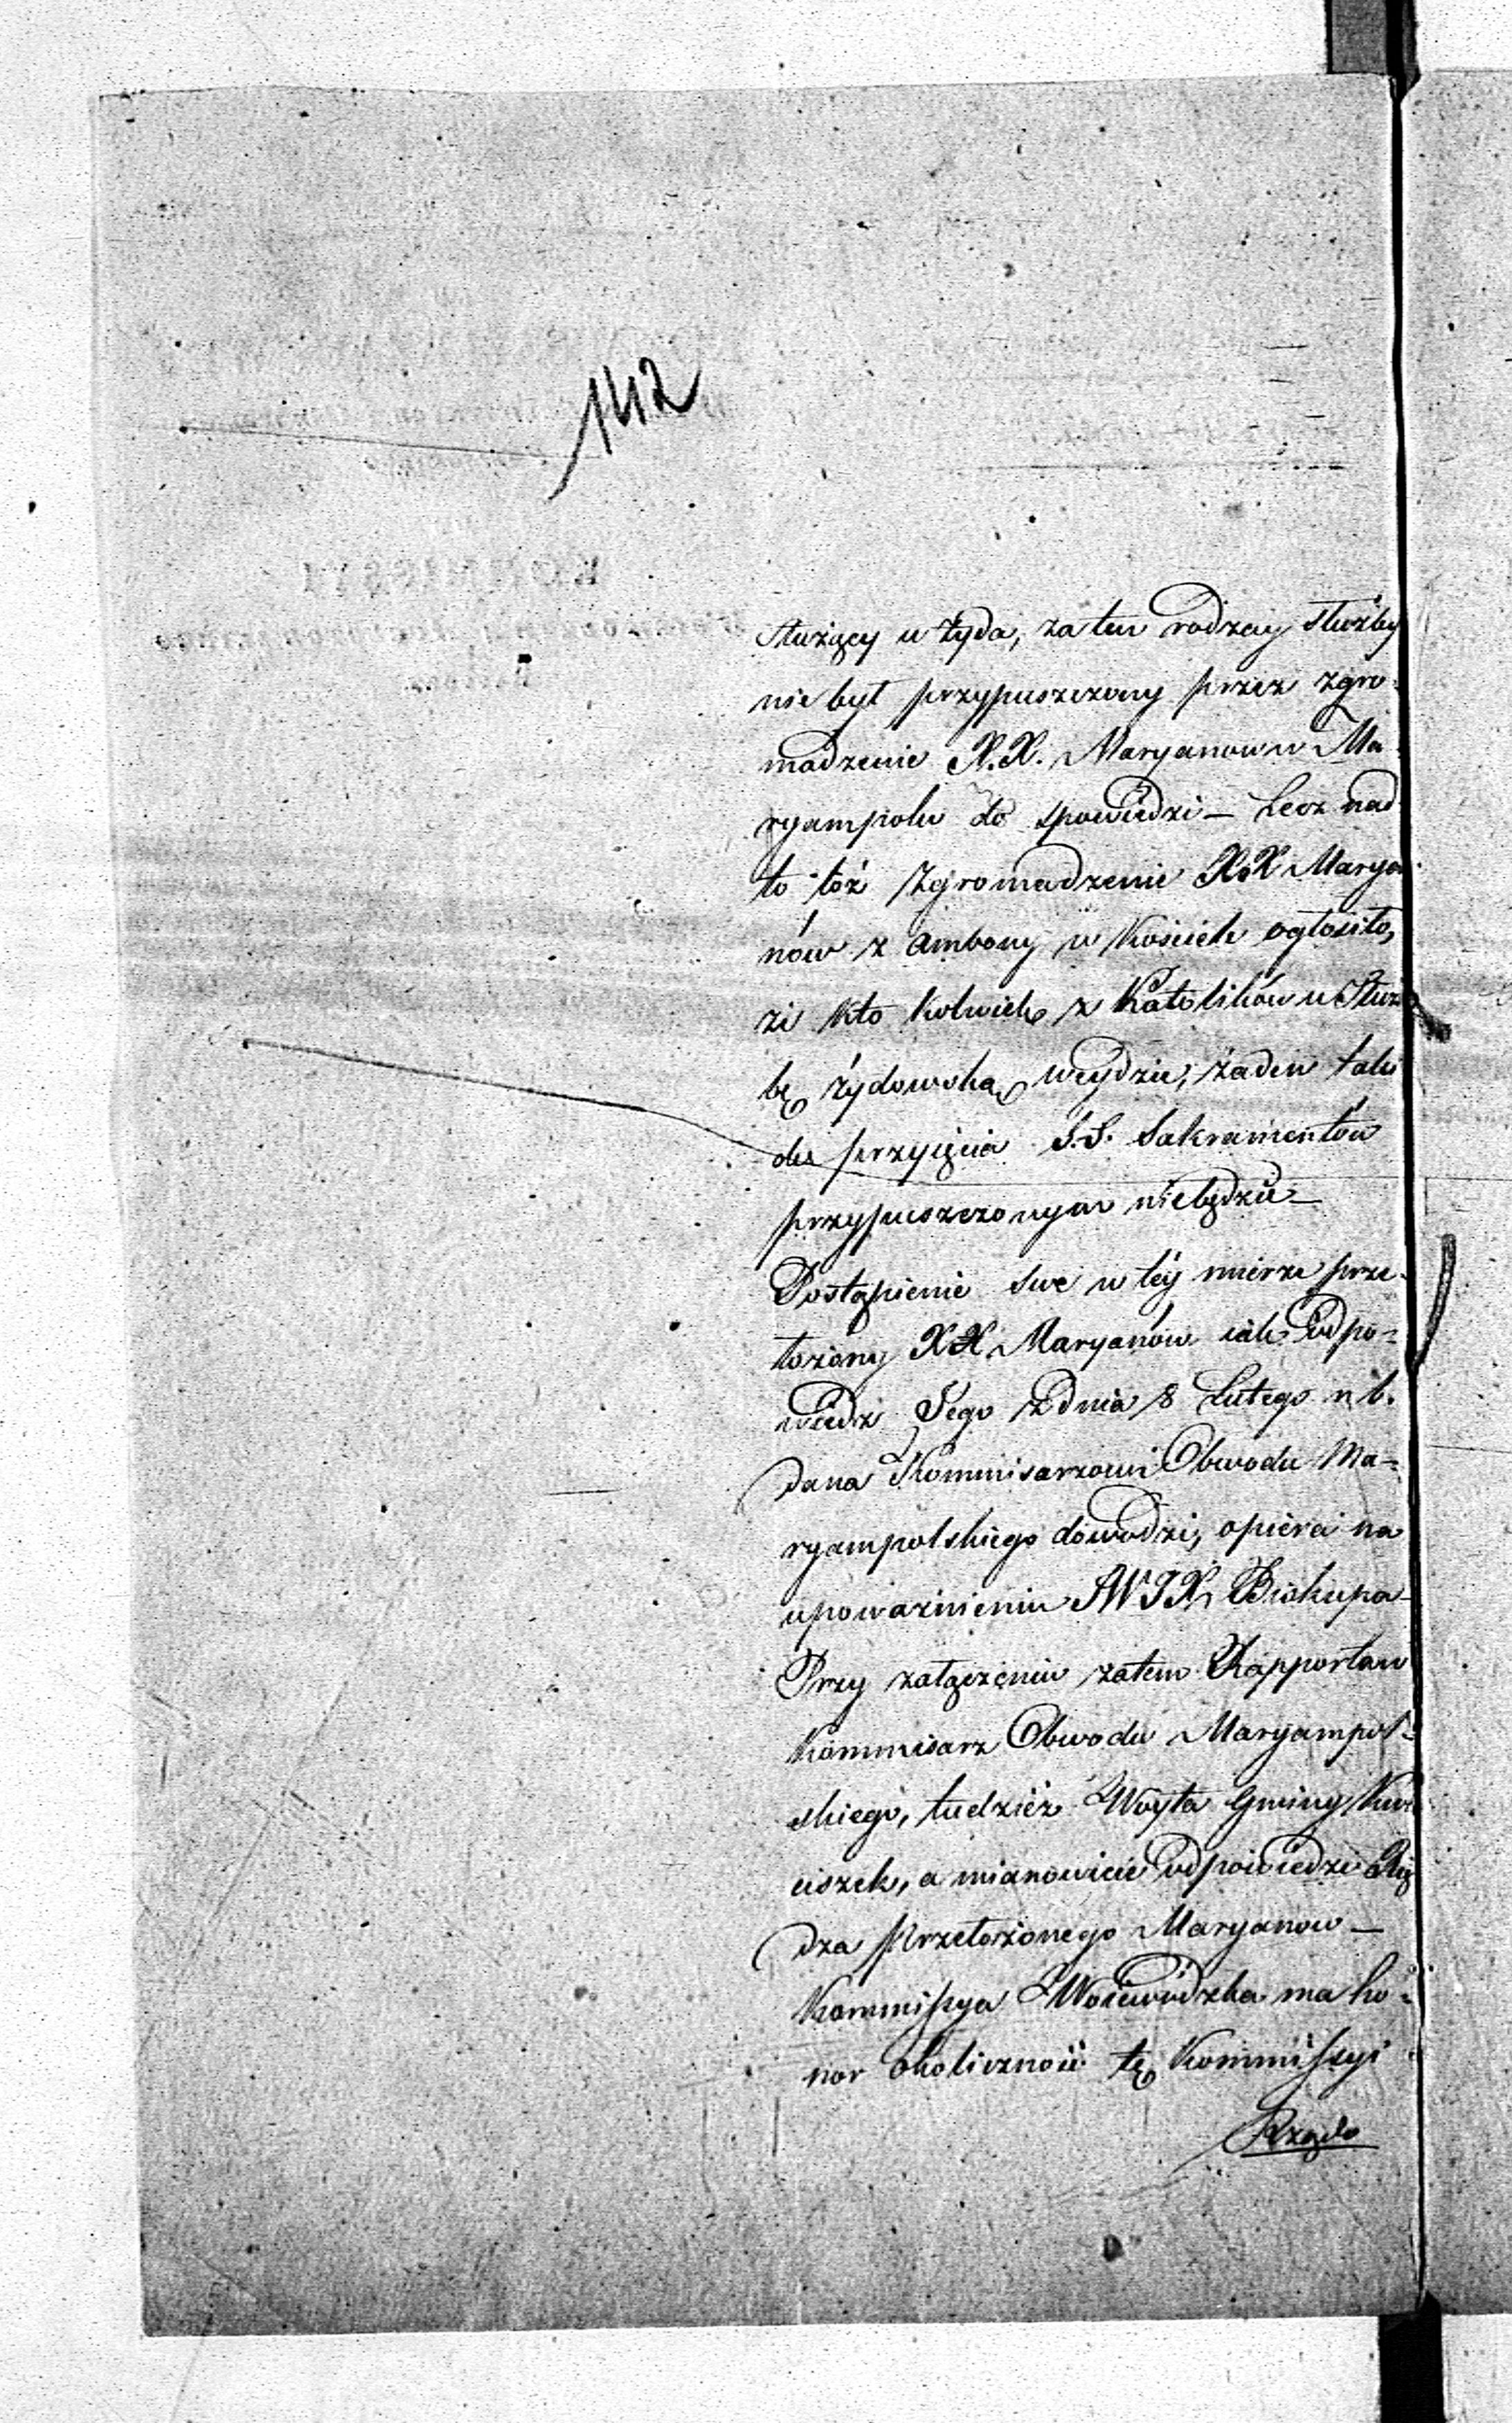 1412
służący u żyda, za ten rodzaj służby
nie był przypuszczony przez zgro-
madzenie X.X. Maryanow w Ma-
ryampolu do spowiedzi — Lecz nad
to toż Zgromadzenie XX Marya-
nów z ambony w Kościele ogłosiło,
że kto kolwiek z Katolików w służ
bę żydowską weydzie, żaden taki
do przyięcia S.S. Sakramentów
przypuszczonym niebędzie —
Postąpienie swe w téy mierze prze-
łożony XX Maryanów iak odpo-
wiedź Jego z dnia 8 Lutego r. b.
dana Kommisarzowi Obwodu Ma-
ryampolskiego dowodzi, opiera na
upoważnieniu JWJX Biskupa —
Przy załączeniu zatem Rapportow
Kommisarz Obwodu Maryampol-
skiego, tudzież Woyta Gminy Kwie
ciszek, a mianowicie odpowiedzi Xię
dza Przełożonego Maryanow —
Kommissya Woiewódzka ma ho-
nor okoliczność tę Kommissyi
Rządo